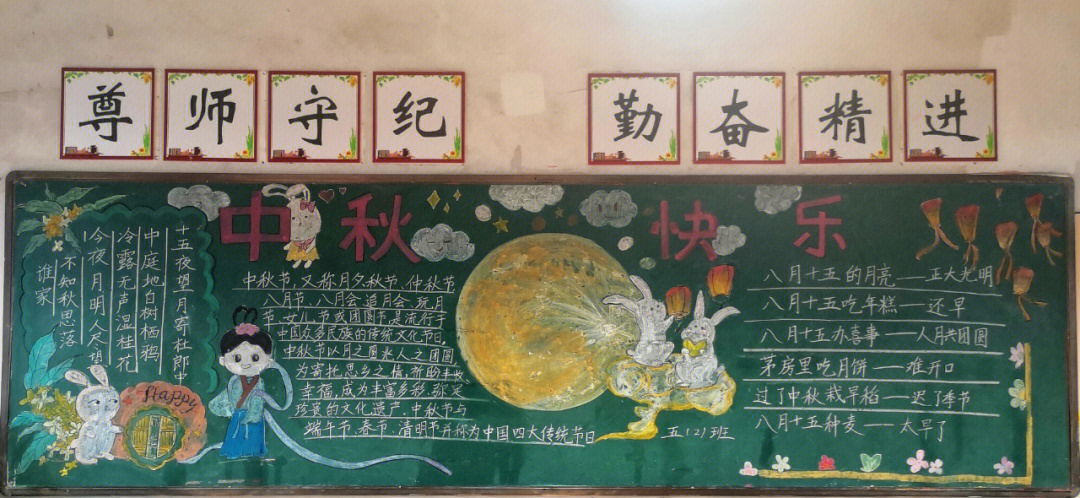 尊师守纪 勤奋精进
中秋快乐
十五夜望月寄杜郎中
中庭地白树栖鸦
冷露无声湿桂花
今夜月明人尽望
不知秋思落
谁家
Happy
中秋节,又称月夕、秋节、仲秋节
八月节、八月会、追月会、玩月
节、女儿节或团圆节,是流行于
中国众多民族的传统文化节日,
中秋节以月之圆兆人之团圆
为寄托思乡之情,祈盼丰收
幸福,成为丰富多彩,弥足
珍贵的文化遗产。中秋节与
端午节、春节、清明节并称为中国四大传统节日
五(2)班
八月十五的月亮——正大光明
八月十五吃年糕——还早
八月十五办喜事——人月共团圆
茅房里吃月饼——难开口
过了中秋栽早稻——迟了季节
八月十五种麦——太早了